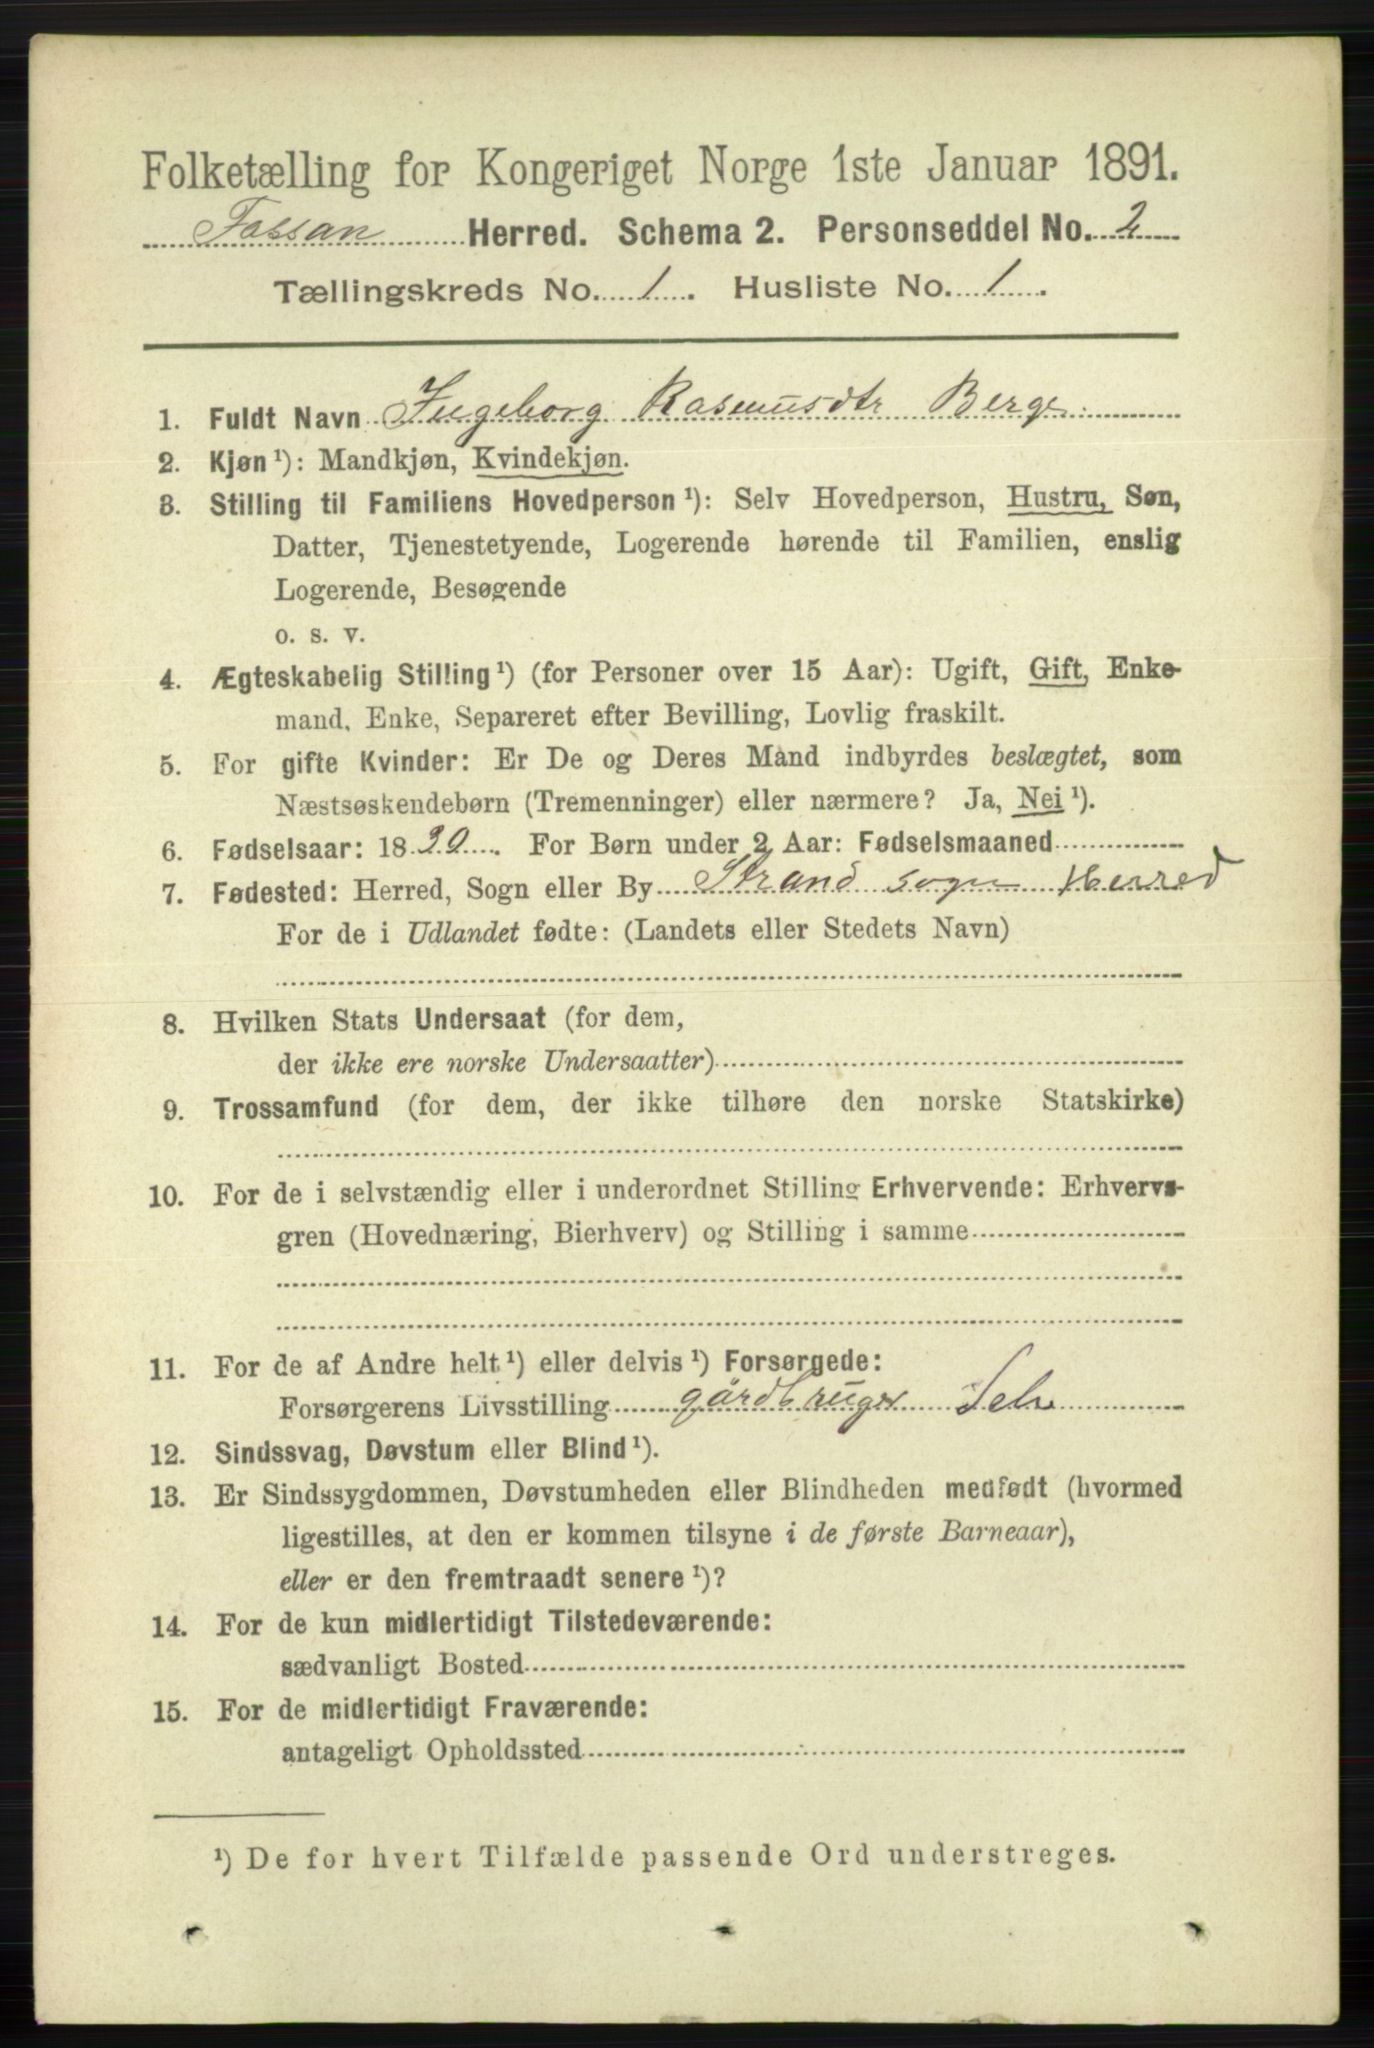 Folketælling for Kongeriget Norge 1ste Januar 1891.
Fossan Herred. Schema 2. Personseddel No. 2
Tællingskreds No. 1. Husliste No. 1.
1. Fuldt Navn Ingeborg Rasmusdtr Berge
2. Kjøn ¹): Mandkjøn, Kvindekjøn.
3. Stilling til Familiens Hovedperson ¹): Selv Hovedperson, Hustru, Søn,
Datter, Tjenestetyende, Logerende hørende til Familien, enslig
Logerende, Besøgende
o. s. v.
4. Ægteskabelig Stilling ¹) (for Personer over 15 Aar): Ugift, Gift, Enke-
mand, Enke, Separeret efter Bevilling, Lovlig fraskilt.
5. For gifte Kvinder: Er De og Deres Mand indbyrdes beslægtet, som
Næstsøskendebørn (Tremenninger) eller nærmere? Ja, Nei ¹).
6. Fødselsaar: 1830. For Børn under 2 Aar: Fødselsmaaned
7. Fødested: Herred, Sogn eller By Strand sogn Herred
For de i Udlandet fødte: (Landets eller Stedets Navn)
8. Hvilken Stats Undersaat (for dem,
der ikke ere norske Undersaatter)
9. Trossamfund (for dem, der ikke tilhøre den norske Statskirke)
10. For de i selvstændig eller i underordnet Stilling Erhvervende: Erhvervs-
gren (Hovednæring, Bierhverv) og Stilling i samme
11. For de af Andre helt ¹) eller delvis ¹) Forsørgede:
Forsørgerens Livsstilling gårdbruger Selv
12. Sindssvag, Døvstum eller Blind ¹).
13. Er Sindssygdommen, Døvstumheden eller Blindheden medfødt (hvormed
ligestilles, at den er kommen tilsyne i de første Barneaar),
eller er den fremtraadt senere ¹)?
14. For de kun midlertidigt Tilstedeværende:
sædvanligt Bosted
15. For de midlertidigt Fraværende:
antageligt Opholdssted
¹) De for hvert Tilfælde passende Ord understreges.